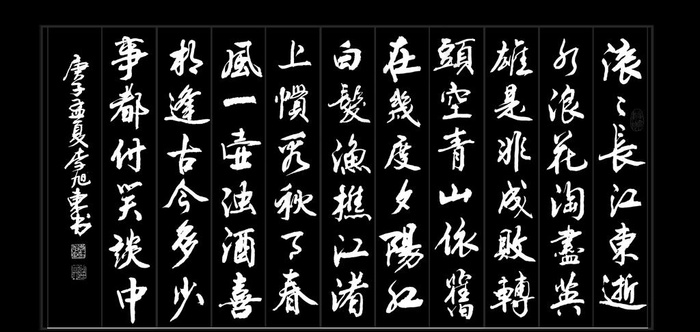 滚〻長江東逝
水浪花淘盡英
雄是非成敗轉
頭空青山依舊
在幾度夕陽红
白髮漁樵江渚
上慣看秋月春
風一壶浊酒喜
相逢古今多少
事都付笑談中
庚子孟夏李旭东书